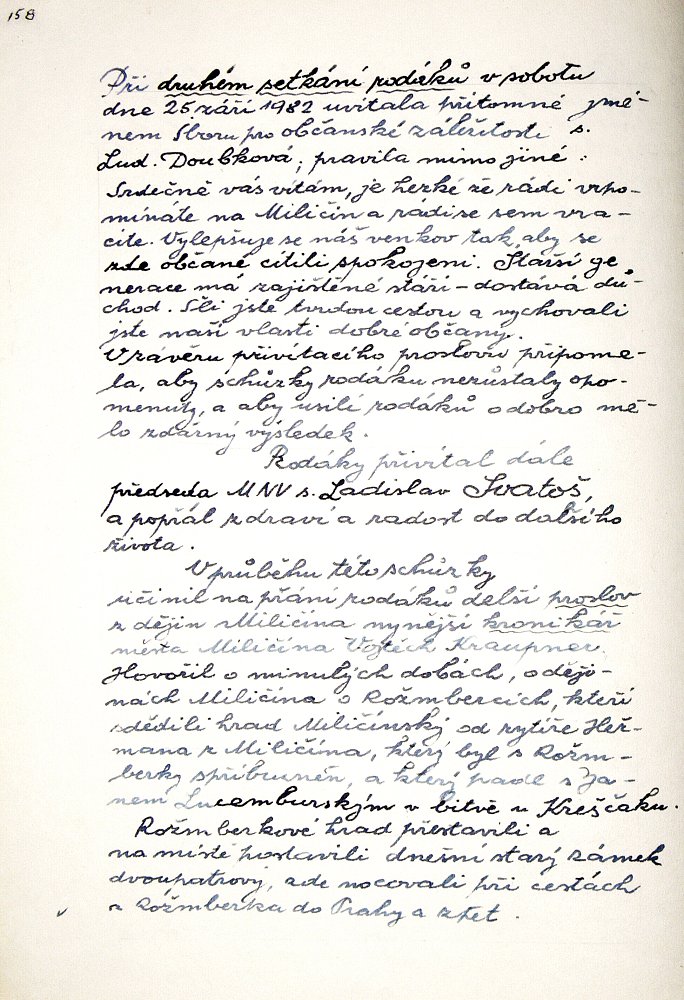 158
Při druhém setkání rodáků v sobotu
dne 25. září 1982 uvítala přítomné jmé-
nem Sboru pro občanské záležitosti s.
Lud. Doubková; pravila mimo jiné:
Srdečně vás vítám, je hezké že rádi vzpo-
mínáte na Miličín a rádi se sem vra-
cíte. Vylepšuje se náš venkov tak, aby se
zde občané cítili spokojeni. Starší ge
nerace má zajištěné stáří - dostává dů-
chod. Šli jste tvrdou cestou a vychovali
jste naší vlasti dobré občany.
V závěru přivítacího proslovu připome-
la, aby schůzky rodáků nezůstaly opo-
menuty, a aby úsilí rodáků o dobro mě-
lo zdárný výsledek.
Rodáky přivítal dále
předseda MNV s. Ladislav Svatoš,
a popřál zdraví a radost do dalšího
života.
V průběhu této schůzky
učinil na přání rodáků delší proslov
z dějin Miličína nynější kronikář
města Miličína Vojtěch Kraupner.
Hovořil o minulých dobách, o ději-
nách Miličína o Rožmbercích, kteří
zdědili hrad Miličínský od rytíře Heř-
mana z Miličína, který byl s Rožm-
berky spřízněn, a který padl s Ja-
nem Lucemburským v bitvě u Kreščaku.
Rožmberkové hrad přestavili a
na místě postavili dnešní starý zámek
dvoupatrový, zde nocovali při cestách
z Rožmberka do Prahy a zpět.